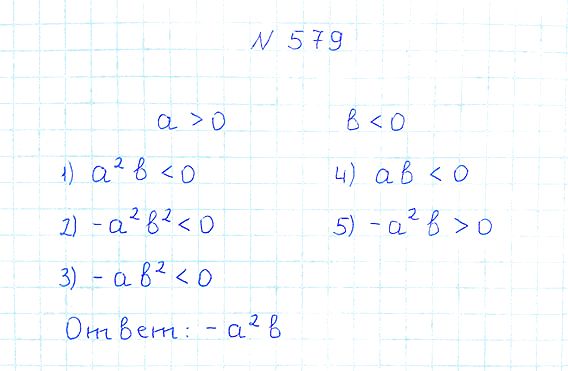 N 579
a > 0 b < 0
1) a² b < 0 4) ab < 0
2) -a² b² < 0 5) -a² b > 0
3) -ab² < 0
Ответ: -a² b